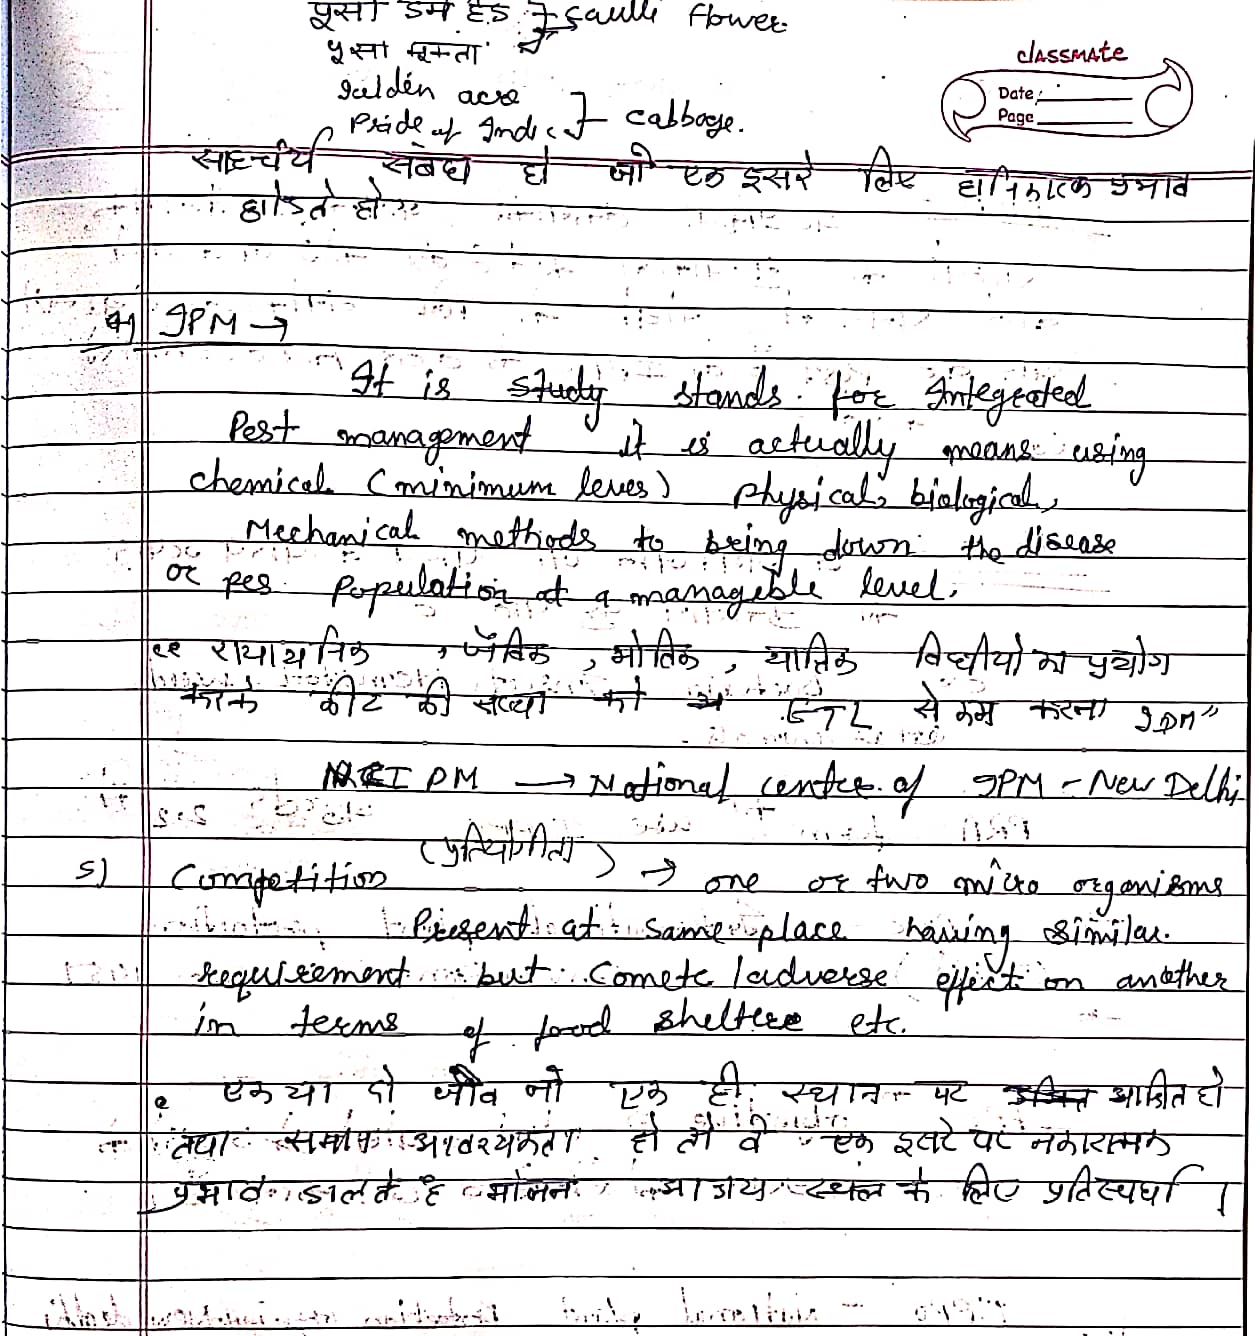 पूसा हेड ] Caulli flower
पूसा
Golden acre
Pride of India ] cabbage.
classmate
Date
Page
साहचर्य संबंध हो जो एक दूसरे लिए हानिकारक प्रभाव
छोडते हो
4) IPM →
It is study stands for Integerated
Pest management it is actually means using
chemical (minimum leves) physical, biological,
Mechanical methods to bring down the disease
or pes population at a managible level.
"रायायनिक, जैविक, भौतिक, यात्रिक विधीयो का प्रयोग
करके कीट की सख्या को ETL से कम करना IPM"
IPM → National centre of IPM - New Delhi
(प्रतियोगीता)
5) Competition → one or two micro organisms
Present at same place having similar
requirement but comete / adverse effect on another
in terms of food sheltere etc.
एक या दो जीव जो एक ही स्थान पर आश्रित हो
तथा समान आवश्यकता हो तो वे एक दूसरे पर नकारात्मक
प्रभाव डालते है भोजन आश्रय स्थल के लिए प्रतिस्पर्धा ।